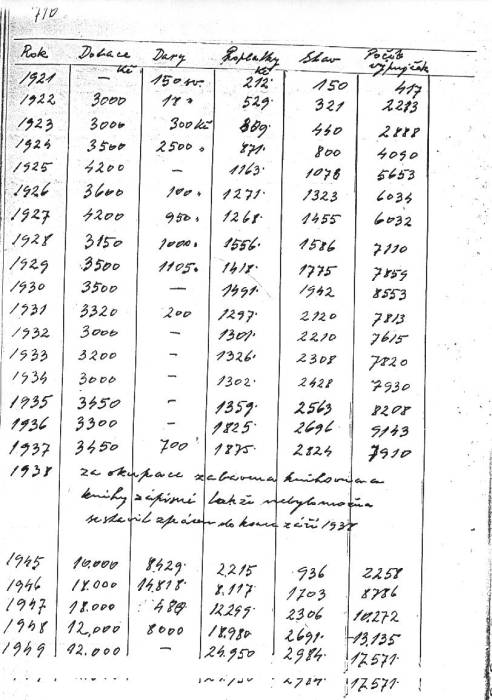 710
Rok Dotace Kč Dary Poplatky Kč Stav Počet výpujček
1921 — 150 sv. 212· 150 417
1922 3000 18 „ 529· 321 2213
1923 3000 300 Kč 809· 440 2888
1924 3500 2500 „ 871· 800 4090
1925 4200 — 1163· 1078 5653
1926 3600 100 „ 1271· 1323 6034
1927 4200 950 „ 1268· 1455 6032
1928 3150 1000 „ 1556· 1586 7110
1929 3500 1105 „ 1418· 1775 7859
1930 3500 — 1491· 1942 8553
1931 3320 200 1297· 2120 7813
1932 3000 — 1301· 2210 7615
1933 3200 — 1326· 2308 7820
1934 3000 — 1302· 2428 7930
1935 3450 — 1359· 2563 8208
1936 3300 — 1825· 2696 9143
1937 3450 700 1875· 2824 7910
1938 za okupace zabavena knihovna a
knihy zápisní takže nebylo možno
sestavit zprávu do konce září 1938
1945 10.000 8429· 2.215 936 2258
1946 18.000 14.818· 8.117· 1703 8786
1947 18.000 480 12259· 2306 10.272
1948 12,000 8000 18.980 2691 13.135
1949 12.000 — 24.950 2984 17.571
17.571